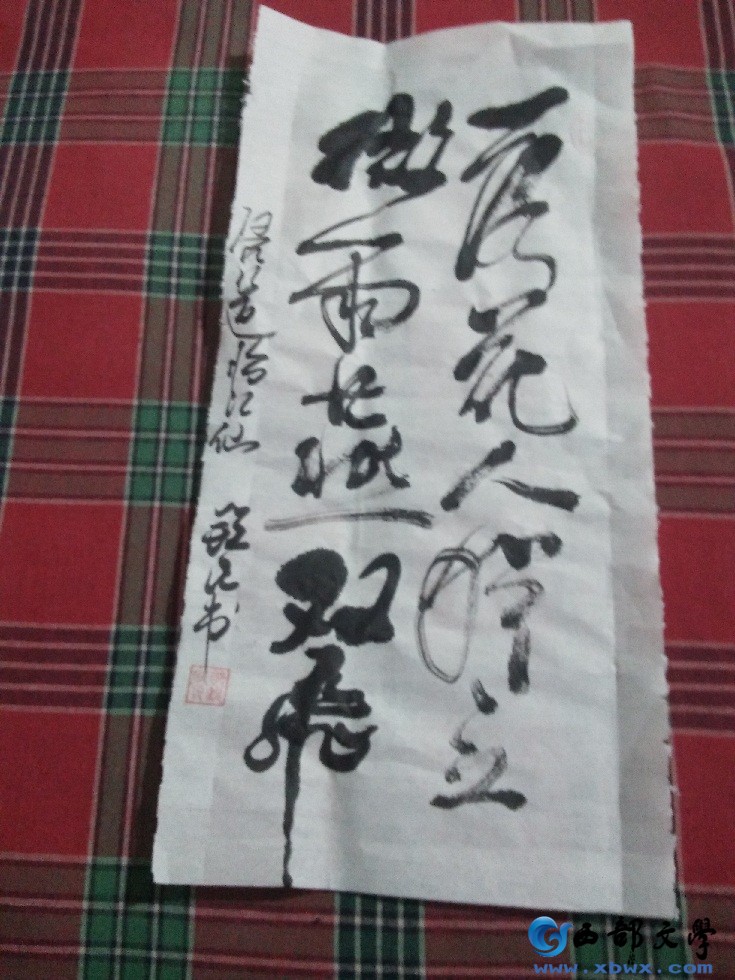 落花人獨立
微雨燕双飞
晏
临江仙
书
西部文學
www.xbwx.com